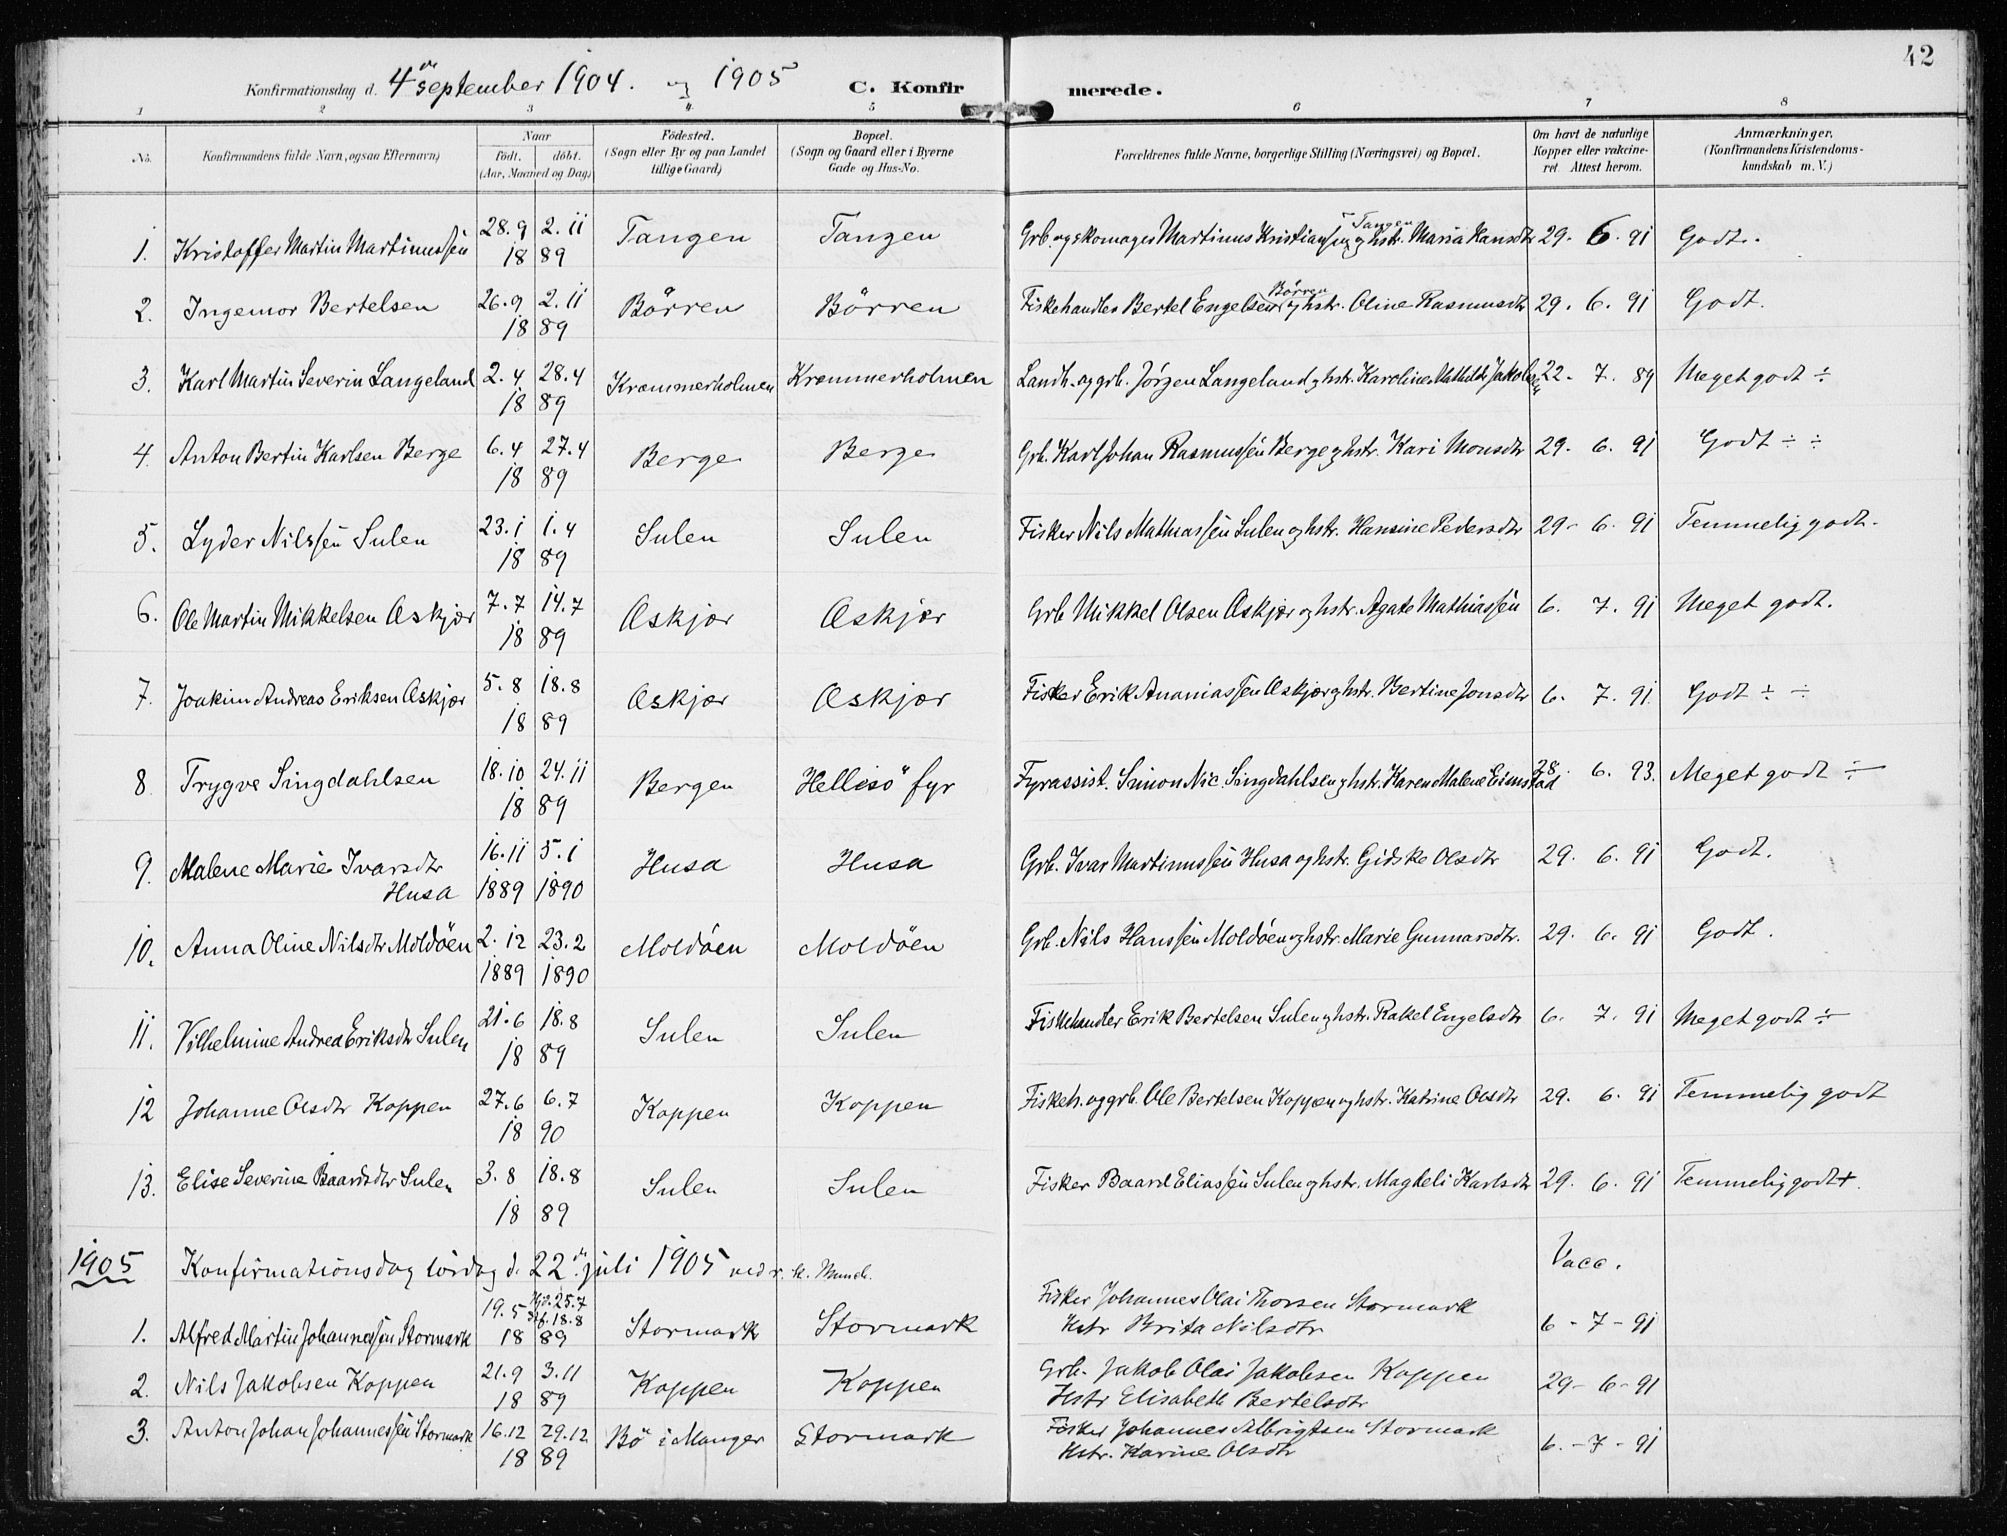 42
Konfirmationsdag d. 4de september 1904. og 1905 C. Konfirmerede.
1 2 3 4 5 6 7 8
No. Konfirmandens fulde Navn, ogsaa Efternavn) Naar födt. döbt. (Aar, Maaned og Dag) Födested. (Sogn eller By og paa Landet tillige Gaard) Bopæl. (Sogn og Gaard eller i Byerne Gade og Hus-No. Forældrenes fulde Navne, borgerlige Stilling (Næringsvei) og Bopæl. Om havt de naturlige Kopper eller vaccineret Attest herom. Anmærkninger. (Konfirmandens Kristendomskundskab m. V.)
1. Kristoffer Martin Martinussen 28.9 2.11 1889 Tangen Tangen Grb. og skomager Martinus Kristiansen Tangen og hstr. Maria Hansdtr 29. 6. 91 Godt.
2. Ingemor Bertelsen 26.9 2.11 1889 Börren Börren Fiskehandler Bertel Engelsen Börren og hstr. Oline Rasmusdtr 29. 6. 91 Godt.
3. Karl Martin Severin Langeland 2.4 28.4 1889 Kræmmerholmen Kræmmerholmen Landh. og grb. Jörgen Langeland og hstr. Karoline Mathilde Jakobsen 22. 7. 89 Meget godt ÷
4. Anton Bertin Karlsen Berge 6.4 27.4 1889 Berge Berge Grb. Karl Johan Rasmussen Berge og hstr. Kari Monsdtr 29. 6. 91 Godt ÷ ÷
5. Lyder Nilssen Sulen 23.1 1.4 1889 Sulen Sulen Fisker Nils Mathiassen Sulen og hstr. Hansine Pedersdtr 29. 6. 91 Temmelig godt.
6. Ole Martin Mikkelsen Æskjær 7.7 14.7 1889 Æskjær Æskjær Grb Mikkel Olsen Æskjær og hstr. Agate Mathiassen 6. 7. 91 Meget godt.
7. Joakim Andreas Eriksen Æskjær 5.8 18.8 1889 Æskjær Æskjær Fisker Erik Ananiassen Æskjær og hstr. Bertine Jonsdtr 6. 7. 91. Godt ÷ ÷
8. Trygve Singdahlsen 18.10 24.11 1889 Bergen Hellisö fyr Fyrassist. Simon Nic. Singdahlsen og hstr. Karen Malene Eimstad 28. 6. 93. Meget godt ÷
9. Malene Marie Ivarsdtr Husa 16.11 5.1 1889 1890 Husa Husa Grb. Ivar Martinussen Husa og hstr. Gidske Olsdtr 29. 6. 91 Godt.
10. Anna Oline Nilsdtr Moldöen 2.12 23.2 1889 1890 Moldöen Moldöen Grb. Nils Hanssen Moldöen og hstr. Marie Gunnarsdtr. 29. 6. 91 Godt.
11. Vilhelmine Andrea Eriksdtr Sulen 21.6 18.8 1889 Sulen Sulen Fiskehandler Erik Bertelsen Sulen og hstr. Rakel Engelsdtr 6. 7. 91 Meget godt ÷
12 Johanne Olsdtr Koppen 27.6 6.7 1890 Koppen Koppen Fiskeh. og grb. Ole Bertelsen Koppen og hstr. Katrine Olsdtr 29. 6. 91 Temmelig godt
13. Elise Severine Baardsdtr Sulen 3.8 18.8 1889 Sulen Sulen Fisker Baard Eliassen Sulen og hstr. Magteli Karlsdtr 29. 6. 91 Temmelig godt +
1905 Konfirmationsdag lördag d. 22de juli 1905 ved r. k. Munch. Vacc.
1. Alfred Martin Johannessen Stormark 19.5 Hjd. 25.7 stf. 18.8 1889 Stormark Stormark Fisker Johannes Olai Thorsen Stormark Hstr Brita Nilsdtr 6-7-91
2. Nils Jakobsen Koppen 21.9 3.11 1889 Koppen Koppen Grb. Jakob Olai Jakobsen Koppen Hstr Elisabeth Bertelsdtr 29-6-91
3. Anton Johan Johannessen Stormark 16.12 29.12 1889 Bö i Manger Stormark Fisker Johannes Albrigtsen Stormark Hstr. Karine Olsdtr 6.-7-91